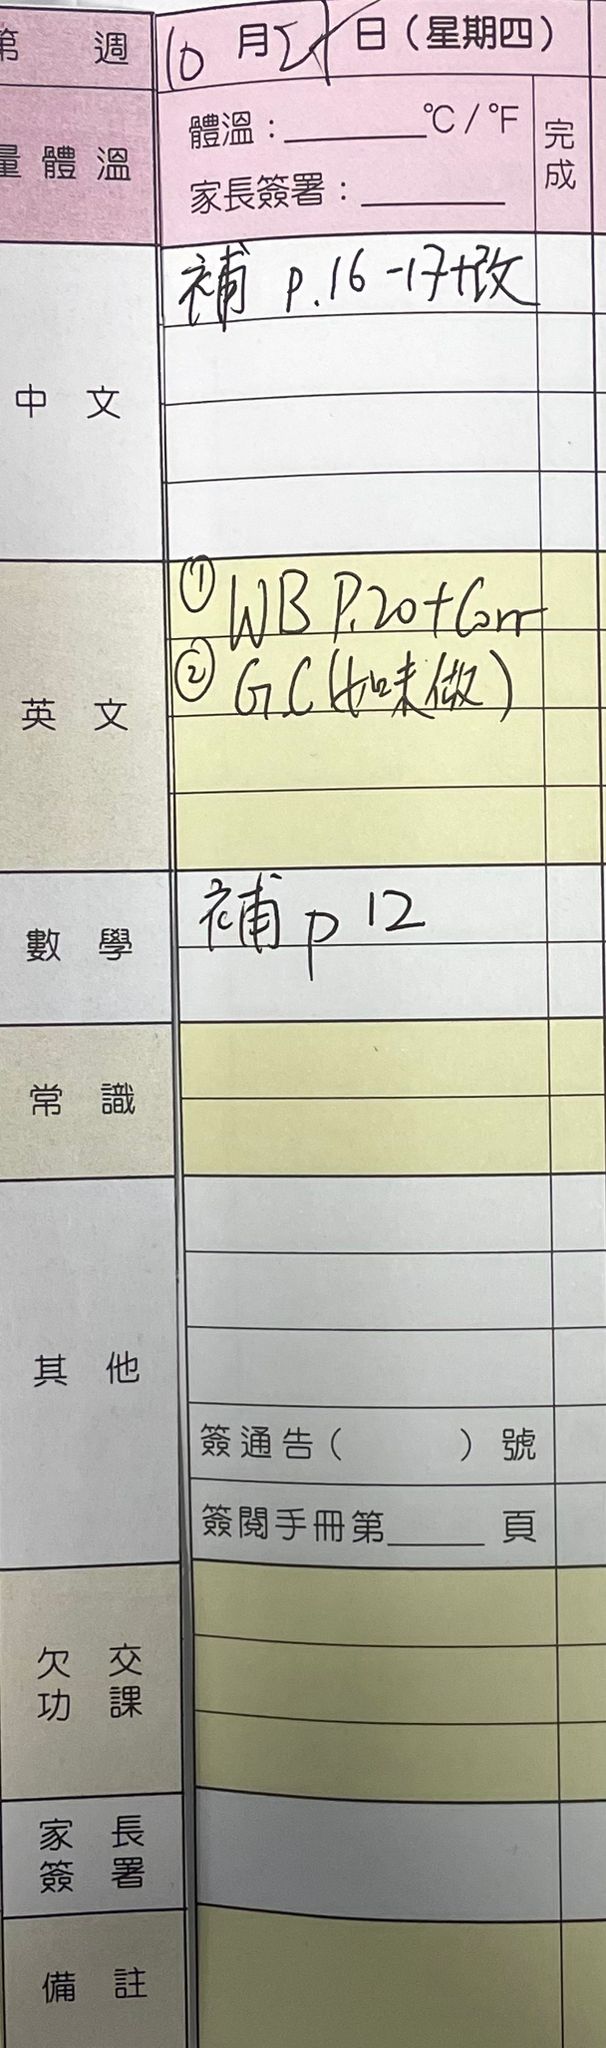 第 週 10 月 21 日（星期四）
量體溫 體溫：______℃/℉ 完成
家長簽署：______
中文 補 p.16-17+改
英文 ① WB P.20+Corr
② GC(如未做)
數學 補 p 12
常識
其他
簽通告（ ）號
簽閱手冊第____頁
欠交功課
家長簽署
備註